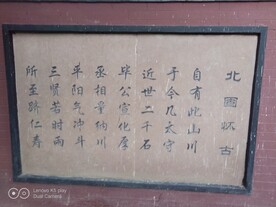 北國怀古
自有此山川
于今几太守
近世二千石
毕公宣化厚
丞相量纳川
平阳气冲斗
三贤若时雨
所至跻仁寿
Lenovo K5 play
Dual Camera